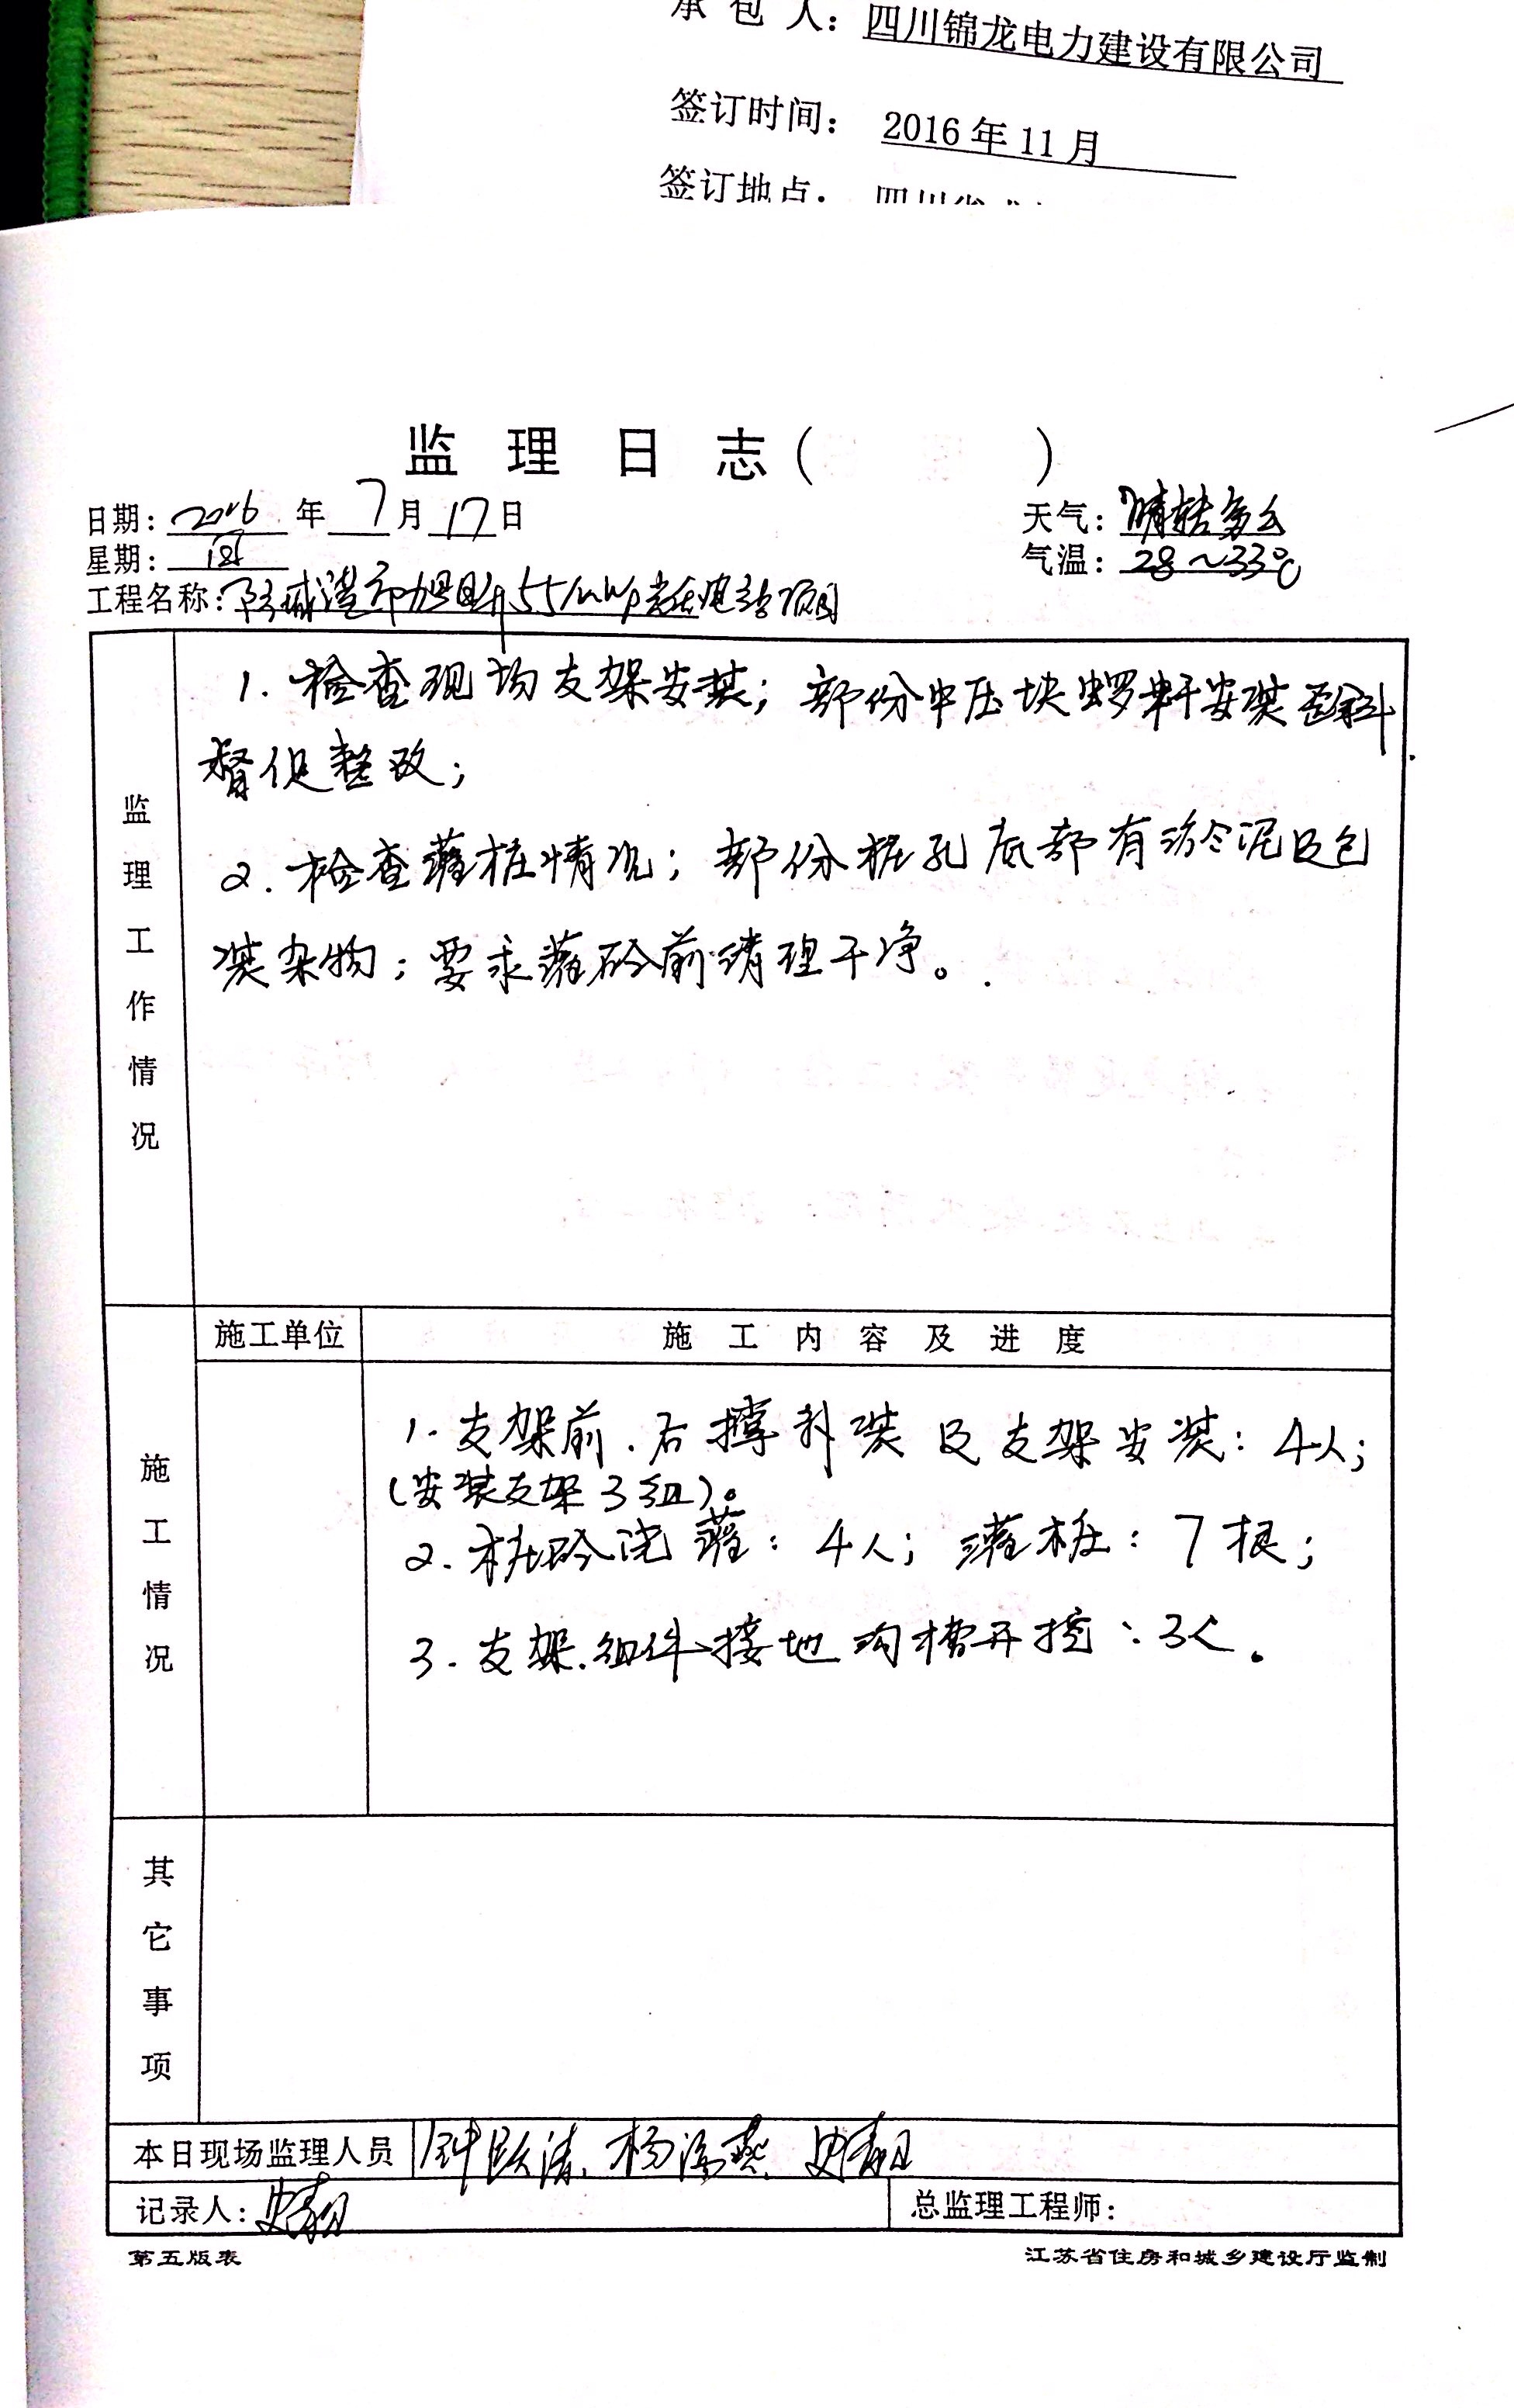 承包人：四川锦龙电力建设有限公司
签订时间： 2016年11月
签订地点： 四川省
监理日志（ ）
日期：2016年7月17日
天气：晴转多云
星期：
气温：28～33℃
工程名称：防城港市旭日升55MWp光伏电站项目
监理工作情况
1.检查现场支架安装；部份中压块螺杆安装歪斜
督促整改；
2.检查灌桩情况；部份桩孔底部有淤泥及包
装杂物；要求灌砼前清理干净。
施工情况
施工单位 施工内容及进度
1.支架前.后撑补装及支架安装：4人；
（安装支架3组）。
2.桩砼浇灌：4人；灌桩：7根；
3.支架.组件接地沟槽开挖：3人。
其它事项
本日现场监理人员
记录人：
总监理工程师：
第五版表
江苏省住房和城乡建设厅监制